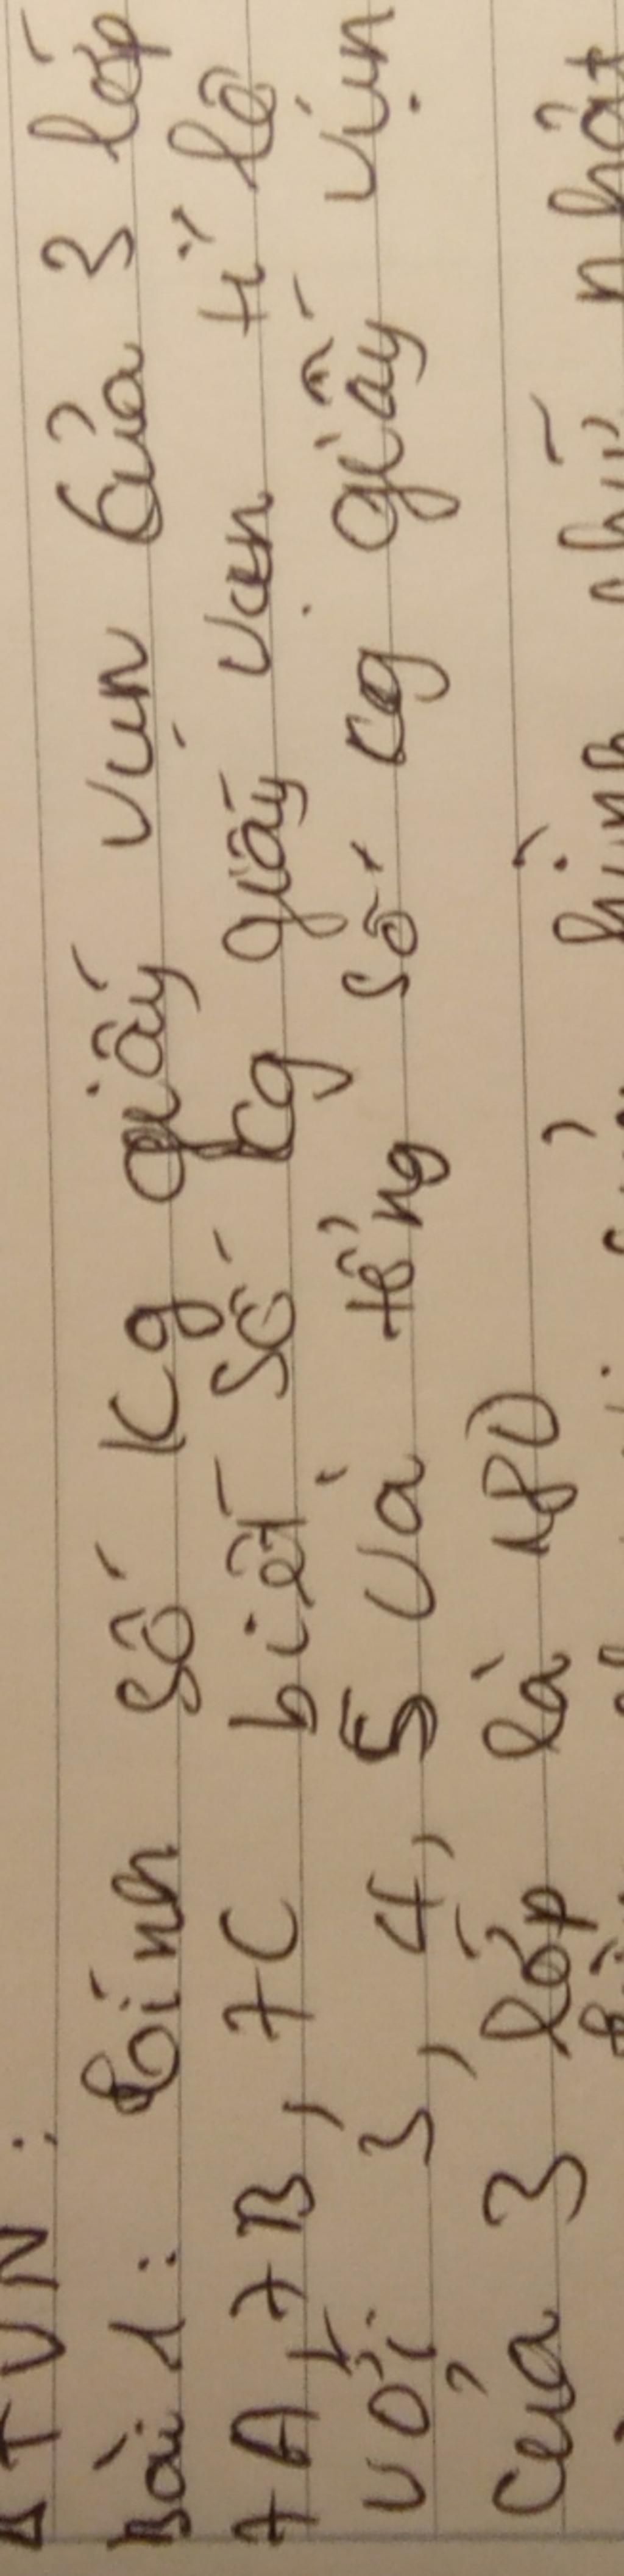 BTVN:
Bài 1: Tính số Kg giấy vụn của 3 lớp
7A, 7B, 7C biết số kg giấy vụn tỉ lệ
với 3, 4, 5 và tổng số kg giấy vụn
của 3 lớp là 180